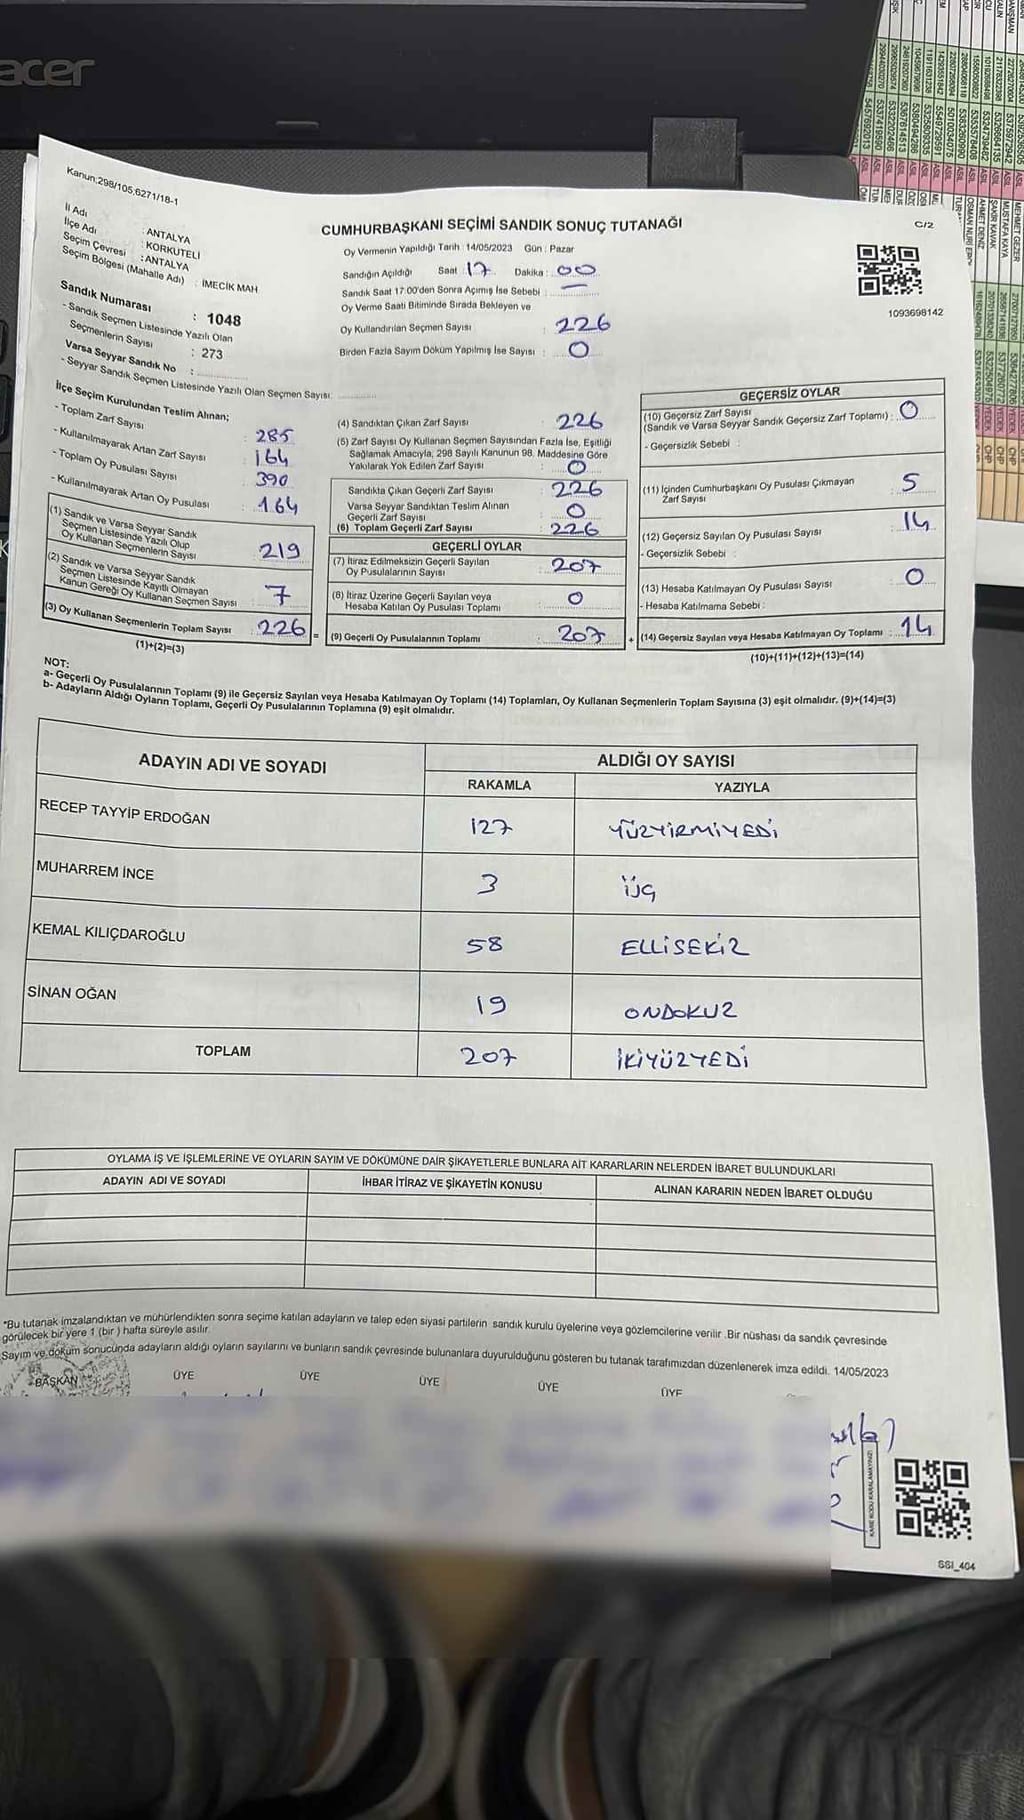 acer
Kanun:298/105,6271/18-1
CUMHURBAŞKANI SEÇİMİ SANDIK SONUÇ TUTANAĞI
C/2
İl Adı : ANTALYA
İlçe Adı : KORKUTELİ
Seçim Çevresi : ANTALYA
Seçim Bölgesi (Mahalle Adı) : İMECİK MAH.
Sandık Numarası : 1048
- Sandık Seçmen Listesinde Yazılı Olan
Seçmenlerin Sayısı : 273
Varsa Seyyar Sandık No :
- Seyyar Sandık Seçmen Listesinde Yazılı Olan Seçmen Sayısı:
Oy Vermenin Yapıldığı Tarih : 14/05/2023 Gün : Pazar
Sandığın Açıldığı Saat : 17 Dakika : 00
Sandık Saat 17:00'den Sonra Açımış İse Sebebi : —
Oy Verme Saati Bitiminde Sırada Bekleyen ve
Oy Kullandırılan Seçmen Sayısı : 226
Birden Fazla Sayım Döküm Yapılmış İse Sayısı : 0
1093698142
İlçe Seçim Kurulundan Teslim Alınan;
- Toplam Zarf Sayısı : 285
- Kullanılmayarak Artan Zarf Sayısı : 164
- Toplam Oy Pusulası Sayısı : 390
- Kullanılmayarak Artan Oy Pusulası : 164
(1) Sandık ve Varsa Seyyar Sandık
Seçmen Listesinde Yazılı Olup
Oy Kullanan Seçmenlerin Sayısı : 219
(2) Sandık ve Varsa Seyyar Sandık
Seçmen Listesinde Kayıtlı Olmayan
Kanun Gereği Oy Kullanan Seçmen Sayısı : 7
(3) Oy Kullanan Seçmenlerin Toplam Sayısı : 226 =
(1)+(2)=(3)
(4) Sandıktan Çıkan Zarf Sayısı : 226
(5) Zarf Sayısı Oy Kullanan Seçmen Sayısından Fazla İse, Eşitliği
Sağlamak Amacıyla, 298 Sayılı Kanunun 98. Maddesine Göre
Yakılarak Yok Edilen Zarf Sayısı : 0
Sandıkta Çıkan Geçerli Zarf Sayısı : 226
Varsa Seyyar Sandıktan Teslim Alınan
Geçerli Zarf Sayısı : 0
(6) Toplam Geçerli Zarf Sayısı : 226
GEÇERLİ OYLAR
(7) İtiraz Edilmeksizin Geçerli Sayılan
Oy Pusulalarının Sayısı : 207
(8) İtiraz Üzerine Geçerli Sayılan veya
Hesaba Katılan Oy Pusulası Toplamı : 0
(9) Geçerli Oy Pusulalarının Toplamı : 207 +
GEÇERSİZ OYLAR
(10) Geçersiz Zarf Sayısı
(Sandık ve Varsa Seyyar Sandık Geçersiz Zarf Toplamı) : 0
- Geçersizlik Sebebi :
(11) İçinden Cumhurbaşkanı Oy Pusulası Çıkmayan
Zarf Sayısı : 5
(12) Geçersiz Sayılan Oy Pusulası Sayısı : 14
- Geçersizlik Sebebi :
(13) Hesaba Katılmayan Oy Pusulası Sayısı : 0
- Hesaba Katılmama Sebebi :
(14) Geçersiz Sayılan veya Hesaba Katılmayan Oy Toplamı : 14
(10)+(11)+(12)+(13)=(14)
NOT:
a- Geçerli Oy Pusulalarının Toplamı (9) ile Geçersiz Sayılan veya Hesaba Katılmayan Oy Toplamı (14) Toplamları, Oy Kullanan Seçmenlerin Toplam Sayısına (3) eşit olmalıdır. (9)+(14)=(3)
b- Adayların Aldığı Oyların Toplamı, Geçerli Oy Pusulalarının Toplamına (9) eşit olmalıdır.
ADAYIN ADI VE SOYADI ALDIĞI OY SAYISI
RAKAMLA YAZIYLA
RECEP TAYYİP ERDOĞAN 127 YÜZYİRMİYEDİ
MUHARREM İNCE 3 ÜÇ
KEMAL KILIÇDAROĞLU 58 ELLİSEKİZ
SİNAN OĞAN 19 ONDOKUZ
TOPLAM 207 İKİYÜZYEDİ
OYLAMA İŞ VE İŞLEMLERİNE VE OYLARIN SAYIM VE DÖKÜMÜNE DAİR ŞİKAYETLERLE BUNLARA AİT KARARLARIN NELERDEN İBARET BULUNDUKLARI
ADAYIN ADI VE SOYADI İHBAR İTİRAZ VE ŞİKAYETİN KONUSU ALINAN KARARIN NEDEN İBARET OLDUĞU
*Bu tutanak imzalandıktan ve mühürlendikten sonra seçime katılan adayların ve talep eden siyasi partilerin sandık kurulu üyelerine veya gözlemcilerine verilir .Bir nüshası da sandık çevresinde
görülecek bir yere 1 (bir ) hafta süreyle asılır.
Sayım ve döküm sonucunda adayların aldığı oyların sayılarını ve bunların sandık çevresinde bulunanlara duyurulduğunu gösteren bu tutanak tarafımızdan düzenlenerek imza edildi. 14/05/2023
BAŞKAN ÜYE ÜYE ÜYE ÜYE ÜYE
KARE KODU KARALAMAYINIZ!
SSI_404